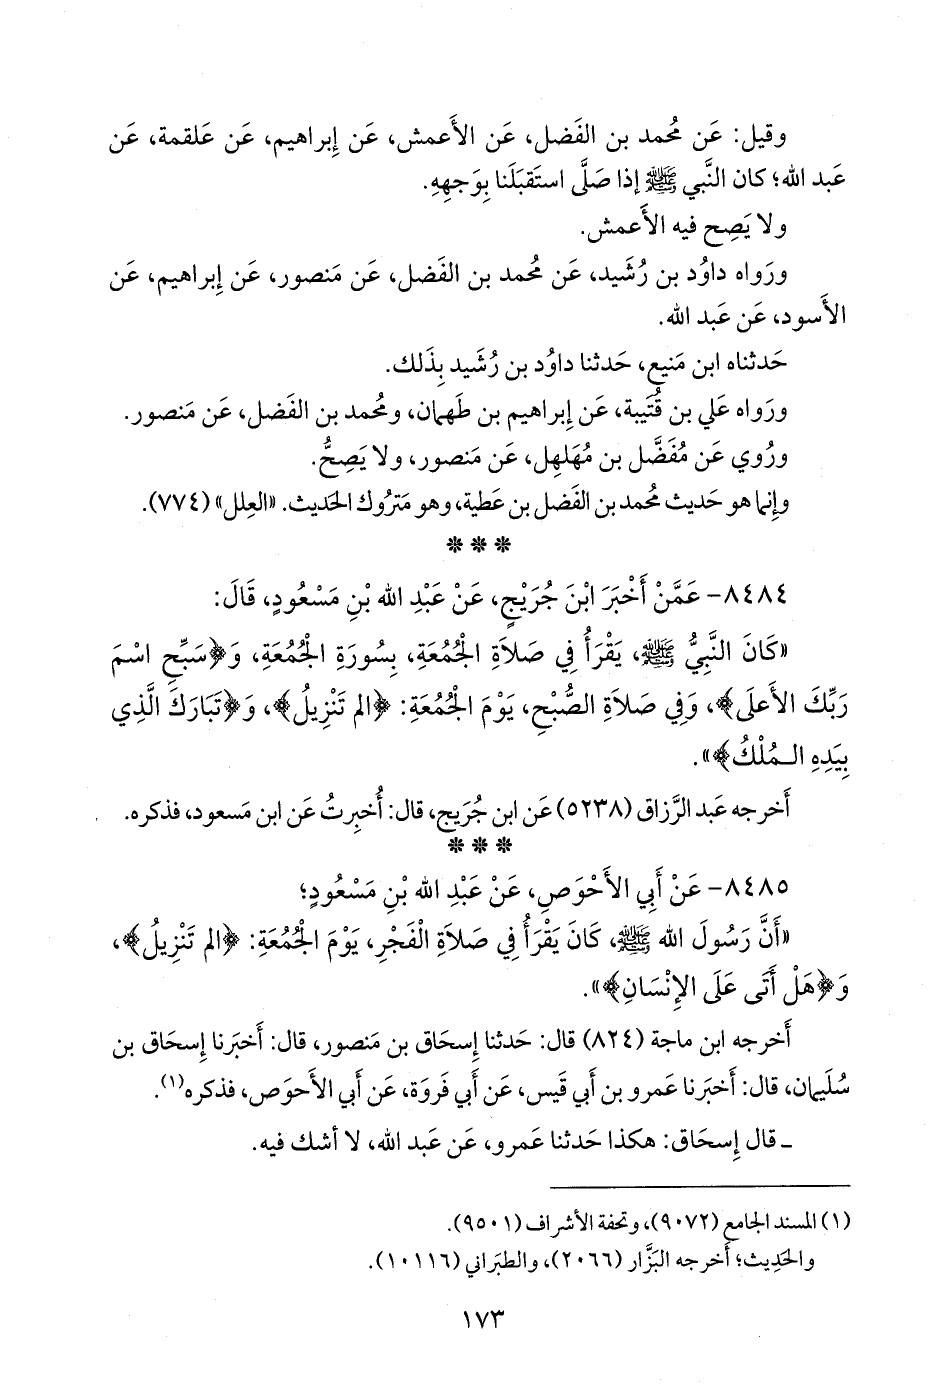 وقيل: عَن مُحمد بن الفَضل، عَن الأَعمش، عَن إِبراهيم، عَن عَلقمة، عَن
عَبد الله؛ كان النَّبي ﷺ إذا صَلَّى استَقبَلَنا بِوَجهِهِ.
ولا يَصِح فيه الأَعمش.
ورَواه داوُد بن رُشَيد، عَن مُحمد بن الفَضل، عَن مَنصور، عَن إِبراهيم، عَن
الأَسود، عَن عَبد الله.
حَدثناه ابن مَنيع، حَدثنا داوُد بن رُشَيد بِذَلك.
ورَواه عَلي بن قُتَيبة، عَن إِبراهيم بن طَهمان، ومُحمد بن الفَضل، عَن مَنصور.
ورُوي عَن مُفَضَّل بن مُهَلهِل، عَن مَنصور، ولا يَصِحُّ.
وإِنما هو حَديث مُحمد بن الفَضل بن عَطية، وهو مَتروك الحَديث. «العِلل» (٧٧٤).
* * *
٨٤٨٤- عَمَّنْ أَخْبَرَ ابْنَ جُرَيْجٍ، عَنْ عَبْدِ الله بْنِ مَسْعُودٍ، قَالَ:
«كَانَ النَّبِيُّ ﷺ، يَقْرَأُ فِي صَلاَةِ الْجُمُعَةِ، بِسُورَةِ الْجُمُعَةِ، وَ﴿سَبِّحِ اسْمَ
رَبِّكَ الأَعلَى﴾، وَفِي صَلاَةِ الصُّبْحِ، يَوْمَ الْجُمُعَةِ: ﴿الم تَنْزِيلُ﴾، وَ﴿تَبَارَكَ الَّذِي
بِيَدِهِ الـمُلْكُ﴾».
أَخرجه عَبد الرَّزاق (٥٢٣٨) عَن ابن جُرَيج، قال: أُخبِرتُ عَن ابن مَسعود، فذكره.
* * *
٨٤٨٥- عَنْ أَبِي الأَحْوَصِ، عَنْ عَبْدِ الله بْنِ مَسْعُودٍ؛
«أَنَّ رَسُولَ الله ﷺ، كَانَ يَقْرَأُ فِي صَلاَةِ الْفَجْرِ، يَوْمَ الْجُمُعَةِ: ﴿الم تَنْزِيلُ﴾،
وَ﴿هَلْ أَتَى عَلَى الإِنْسَانِ﴾».
أَخرجه ابن ماجة (٨٢٤) قال: حَدثنا إِسحَاق بن مَنصور، قال: أَخبَرنا إِسحَاق بن
سُلَيمان، قال: أَخبَرنا عَمرو بن أَبي قَيس، عَن أَبي فَروَة، عَن أَبي الأَحوَص، فذكره(١).
ـ قال إِسحَاق: هكذا حَدثنا عَمرو، عَن عَبد الله، لا أشك فيه.
(١) المسند الجامع (٩٠٧٢)، وتحفة الأشراف (٩٥٠١).
والحَدِيث؛ أَخرجه البَزَّار (٢٠٦٦)، والطبَراني (١٠١١٦).
١٧٣